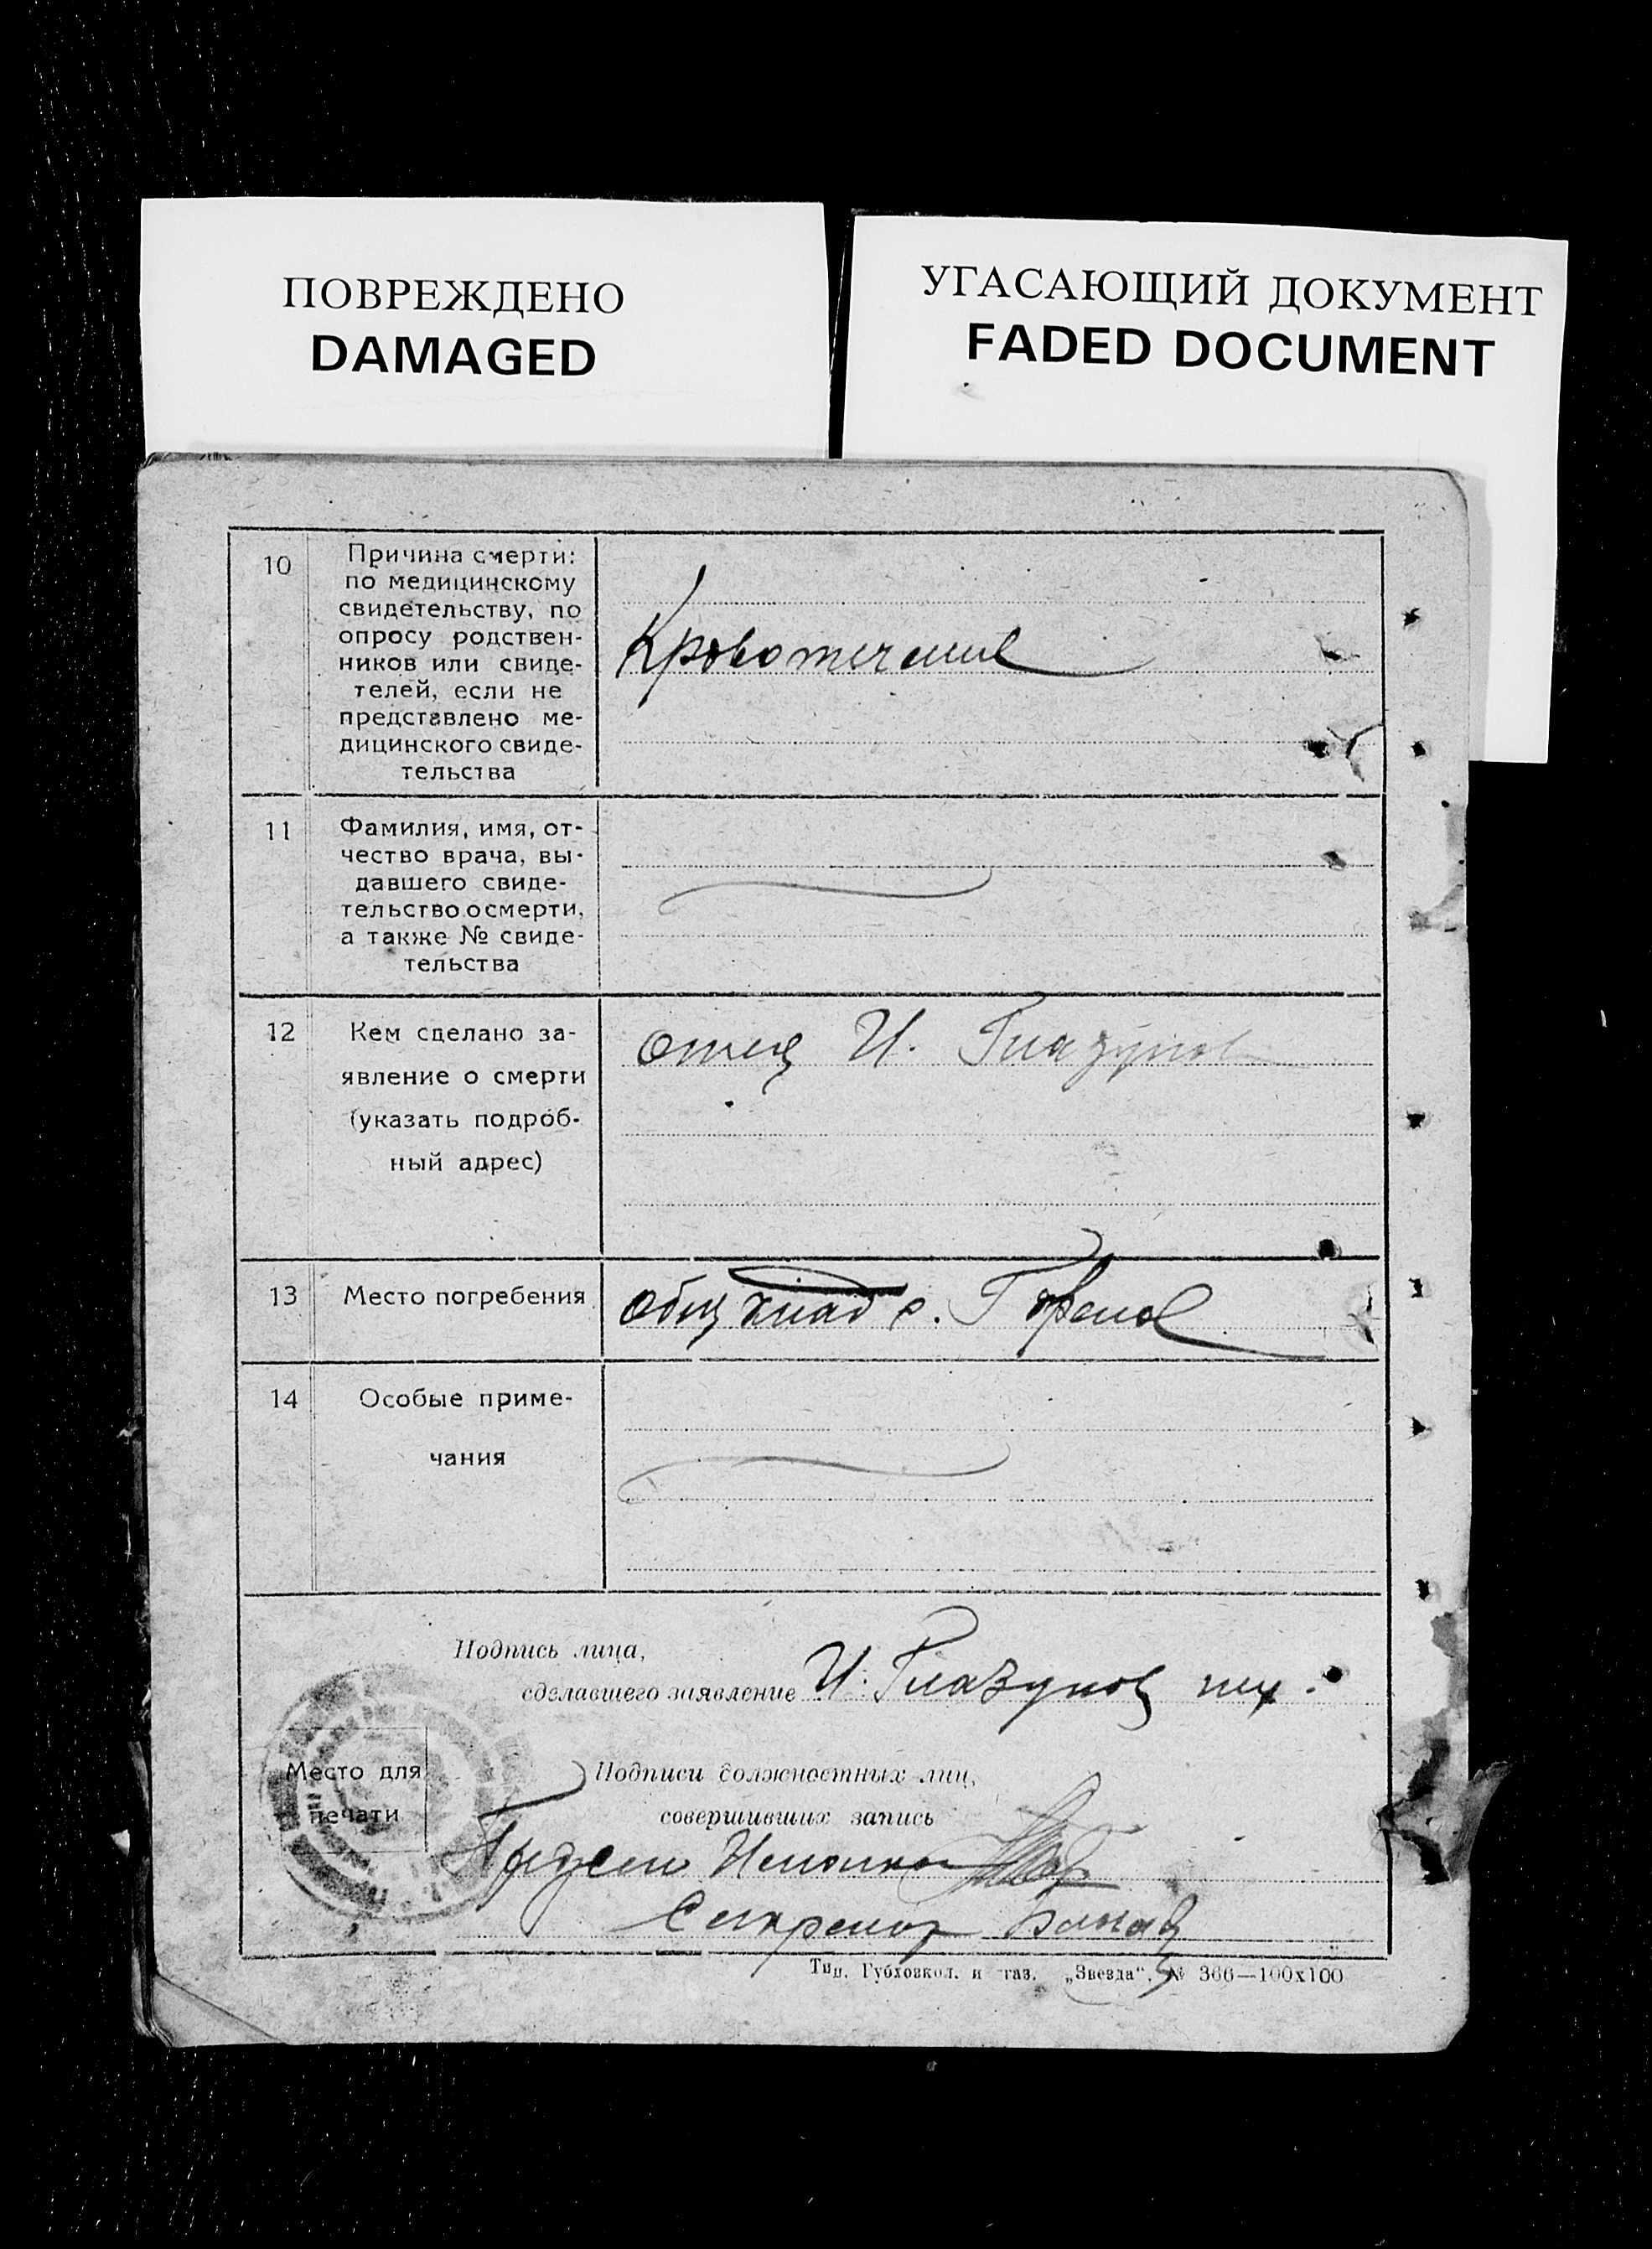 ПОВРЕЖДЕНО
DAMAGED
УГАСАЮЩИЙ ДОКУМЕНТ
FADED DOCUMENT
10
Причина смерти:
по медицинскому
свидетельству, по
опросу родствен-
ников или свиде-
телей, если не
представлено ме-
дицинского свиде-
тельства
Кровотечение
11
Фамилия, имя, от-
чество врача, вы-
давшего свиде-
тельство о смерти,
а также № свиде-
тельства
12
Кем сделано за-
явление о смерти
(указать подроб-
ный адрес)
отец И. Глазунов
13
Место погребения
общ клад с.
14
Особые приме-
чания
Подпись лица,
сделавшего заявление И. Глазунов
Место для
печати
Подписи должностных лиц,
совершивших запись
Секретарь
Тип. Губховкол. и газ. „Звезда". № 366—100х100